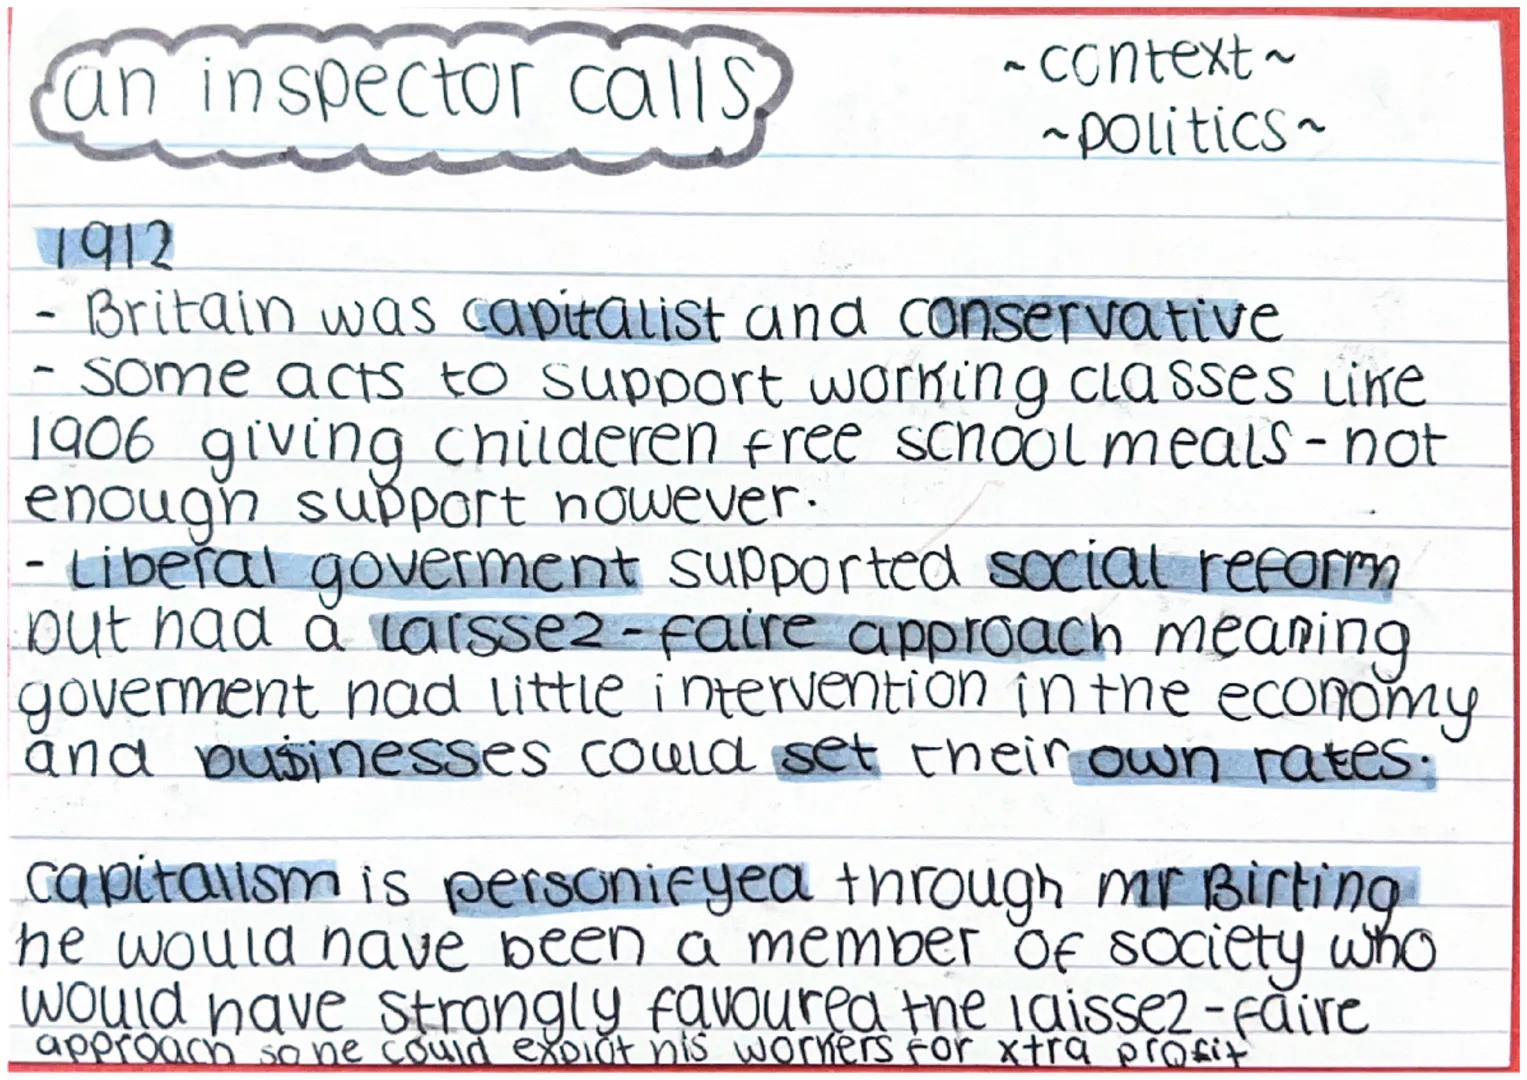 an inspector calls
~context~
~politics~
1912
- Britain was capitalist and conservative
- some acts to support working classes like
1906 giving childeren free school meals - not
enough support however.
- Liberal goverment supported social reform
but had a laissez-faire approach meaning
goverment had little intervention in the economy
and businesses could set their own rates.
capitalism is personifyed through mr Birling
he would have been a member of society who
would have strongly favoured the laissez-faire
approach so he could exploit his workers for xtra profit